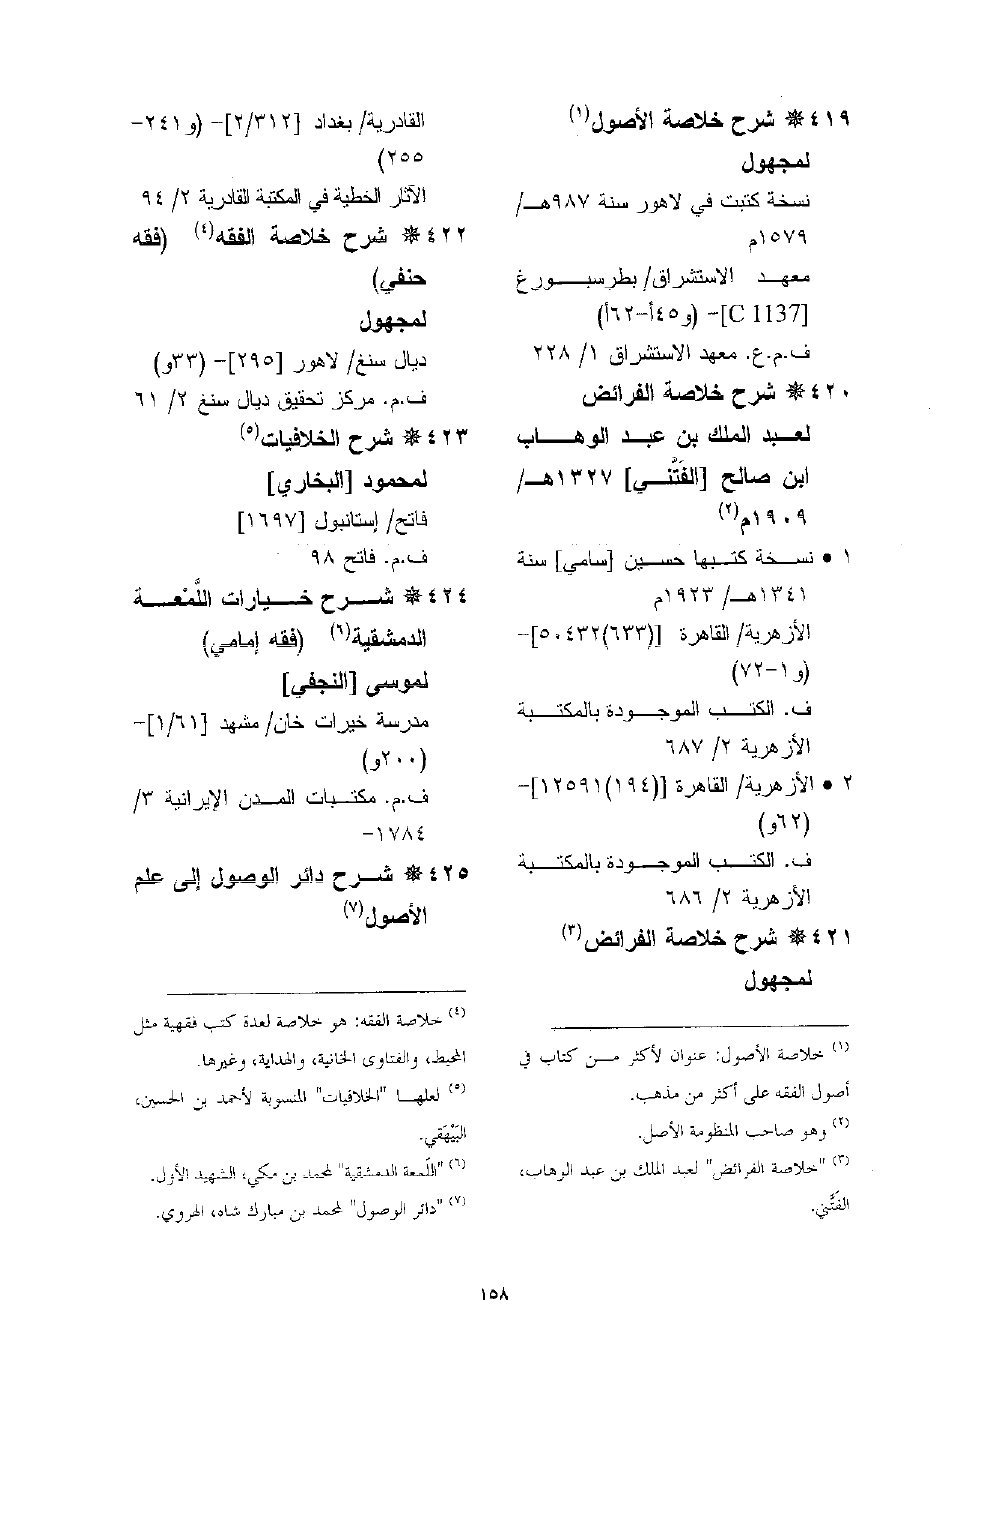 ٤١٩ ❋ شرح خلاصة الأصول(١)
لمجهول
نسخة كتبت في لاهور سنة ٩٨٧هـ/
١٥٧٩م
معهد الاستشراق/ بطرسبورغ
[C 1137]- (و٤٥أ-٦٢أ)
ف.م.ع. معهد الاستشراق ١/ ٢٢٨
٤٢٠ ❋ شرح خلاصة الفرائض
لعبد الملك بن عبد الوهاب
ابن صالح [الفَتَّني] ١٣٢٧هـ/
١٩٠٩م(٢)
١ • نسخة كتبها حسين [سامي] سنة
١٣٤١هـ/ ١٩٢٣م
الأزهرية/ القاهرة [(٦٣٣)٥٠٤٣٢]-
(و١-٧٢)
ف. الكتب الموجودة بالمكتبة
الأزهرية ٢/ ٦٨٧
٢ • الأزهرية/ القاهرة [(١٩٤)١٢٥٩١]-
(٦٢و)
ف. الكتب الموجودة بالمكتبة
الأزهرية ٢/ ٦٨٦
٤٢١ ❋ شرح خلاصة الفرائض(٣)
لمجهول
(١) خلاصة الأصول: عنوان لأكثر من كتاب في
أصول الفقه على أكثر من مذهب.
(٢) وهو صاحب المنظومة الأصل.
(٣) "خلاصة الفرائض" لعبد الملك بن عبد الوهاب،
الفَتَّني.
القادرية/ بغداد [٢/٣١٢]- (و٢٤١-
٢٥٥)
الآثار الخطية في المكتبة القادرية ٢/ ٩٤
٤٢٢ ❋ شرح خلاصة الفقه(٤) (فقه
حنفي)
لمجهول
ديال سنغ/ لاهور [٢٩٥]- (٣٣و)
ف.م. مركز تحقيق ديال سنغ ٢/ ٦١
٤٢٣ ❋ شرح الخلافيات(٥)
لمحمود [البخاري]
فاتح/ إستانبول [١٦٩٧]
ف.م. فاتح ٩٨
٤٢٤ ❋ شرح خيارات اللَّمْعة
الدمشقية(٦) (فقه إمامي)
لموسى [النجفي]
مدرسة خيرات خان/ مشهد [١/٦١]-
(٢٠٠و)
ف.م. مكتبات المدن الإيرانية ٣/
١٧٨٤-
٤٢٥ ❋ شرح دائر الوصول إلى علم
الأصول(٧)
(٤) خلاصة الفقه: هو خلاصة لعدة كتب فقهية مثل
المحيط، والفتاوى الخانية، والهداية، وغيرها.
(٥) لعلها "الخلافيات" المنسوبة لأحمد بن الحسين،
البَيْهَقي.
(٦) "اللَّمعة الدمشقية" لمحمد بن مكي، الشهيد الأول.
(٧) "دائر الوصول" لمحمد بن مبارك شاه، الهروي.
١٥٨